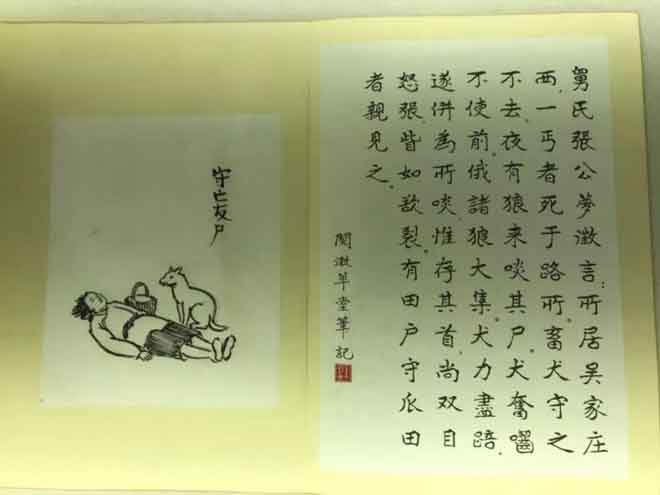 舅氏張公夢徵言:所居吴家庄
西,一丐者死于路,所畜犬守之
不去。夜有狼来啖其尸,犬奮嚙
不使前。俄諸狼大集,犬力盡踣,
遂併為所啖。惟存其首,尚双目
怒張,眥如欲裂。有田户守瓜田
者親見之。
閱微草堂筆記
守亡友尸